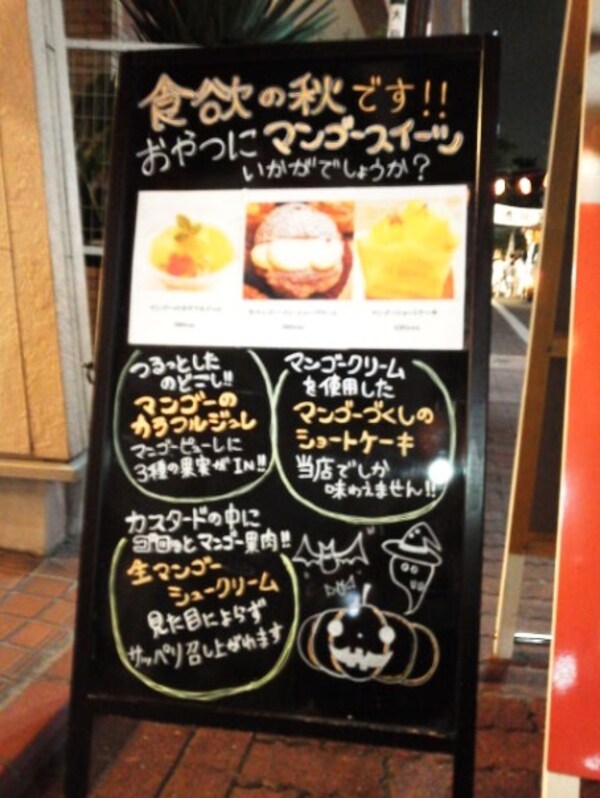 食欲の秋です!!
おやつにマンゴースイーツ
いかがでしょうか?
つるっとした
のどごし!!
マンゴーの
カラフルジュレ
マンゴーピューレに
3種の果実がIN!!
マンゴークリーム
を使用した
マンゴーづくしの
ショートケーキ
当店でしか
味わえません!!
カスタードの中に
ゴロっとマンゴー果肉!!
生マンゴー
シュークリーム
見た目によらず
サッパリ召し上がれます